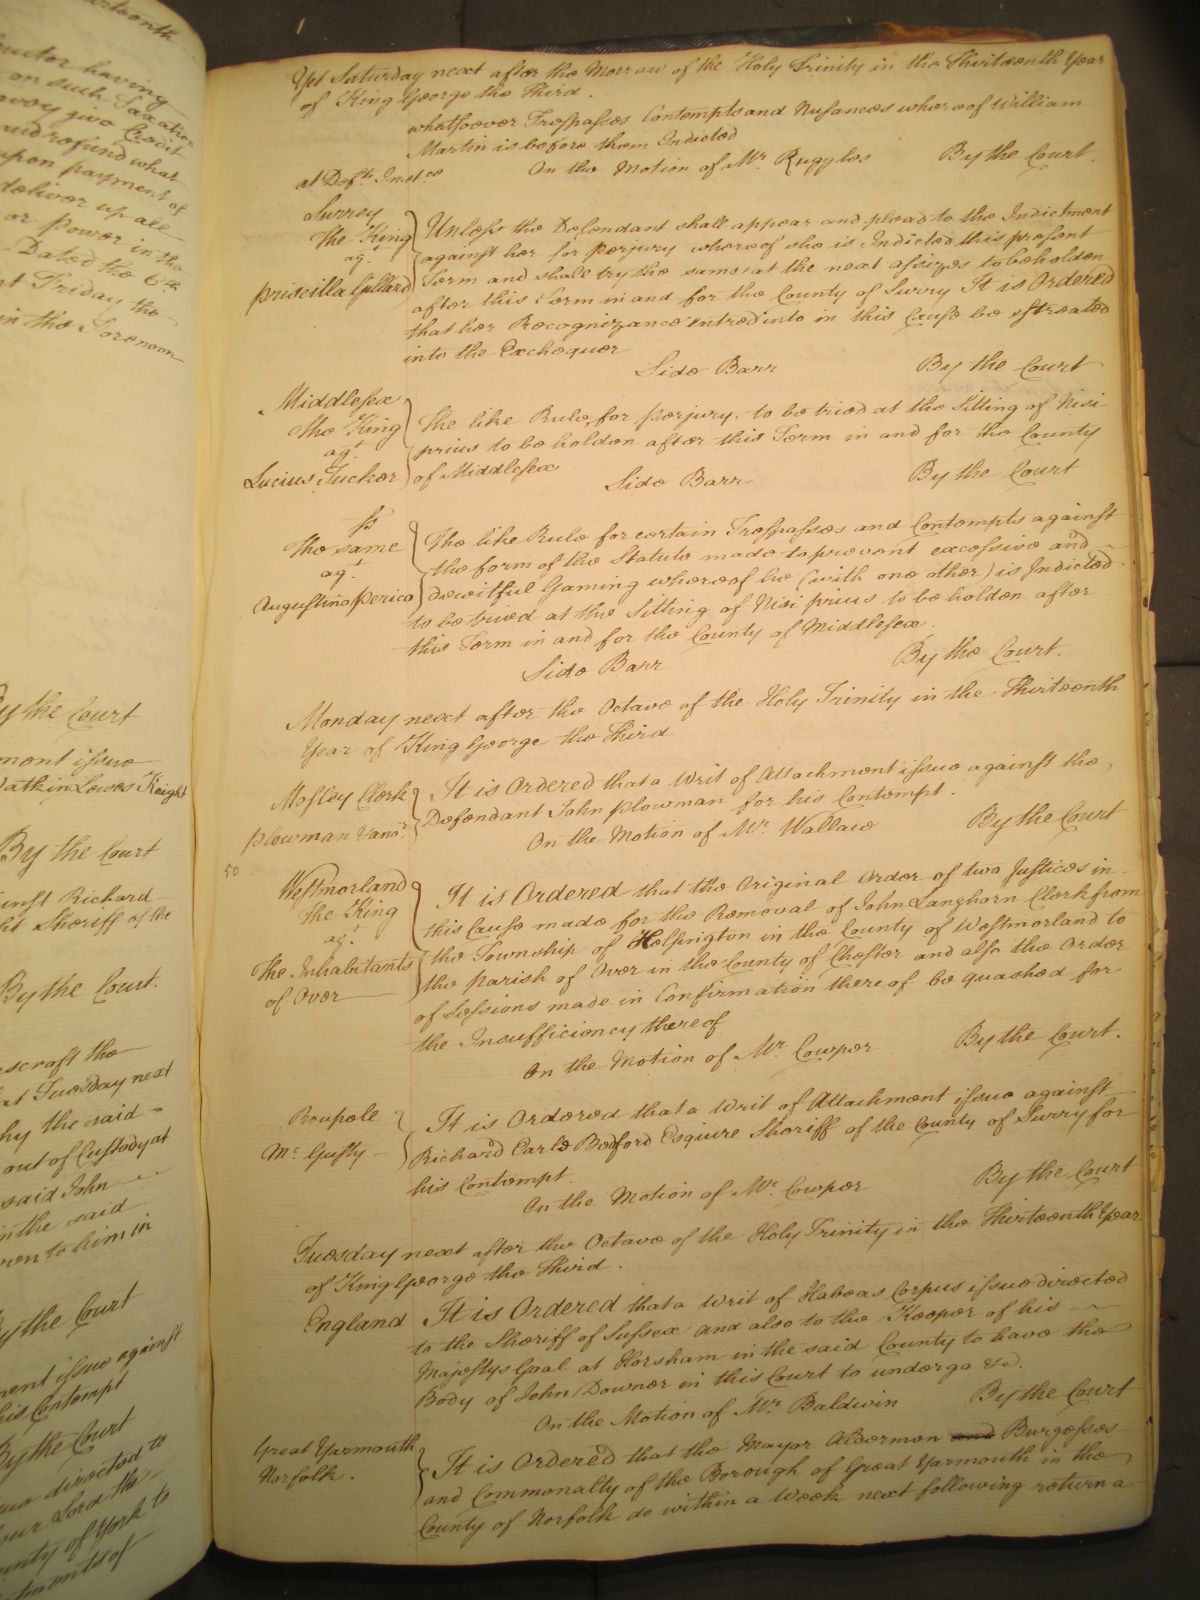 rteenth
ructor having
on such Taxation
give Credit
and refund what
upon payment of
deliver up all
or Power in the
Dated the 6th
at Friday the
in the Forenoon
By the Court
ment issue
Watkin Lewes Knight
By the Court
inst Richard
ht Sheriff of the
By the Court.
scroft the
at Tuesday next
hy the said
out of Custody at
said John
in the said
ven to him in
By the Court
ment issue against
his Contempt
By the Court
directed to
our Lord the
unty of York to
Yet Saturday next after the Morrow of the Holy Trinity in the Thirteenth Year
of King George the Third.
whatsoever Trespasses Contempts and Nusances whereof William
Martin is before them Indicted
at Defts. Instce On the Motion of Mr. Ruggles By the Court.
Surrey
The King
agt.
Priscilla Gillard
Unless the Defendant shall appear and plead to the Indictment
against her for perjury whereof she is Indicted this present
Term and shall try the same at the next assizes to be holden
after this Term in and for the County of Surry It is Ordered
that her Recognizance entred into in this Cause be estreated
into the Exchequer
Side Barr By the Court
Middlesex
The King
agt.
Lucius Tucker
The like Rule for perjury. to be tried at the Sitting of Nisi
prius to be holden after this Term in and for the County
of Middlesex
Side Barr By the Court
ss
The same
agt.
Augustino Perico
The like Rule for certain Trespasses and Contempts against
the form of the Statute made to prevent excessive and
deceitful Gaming whereof he (with one other) is Indicted
to be tried at the Sitting of Nisi prius to be holden after
this Term in and for the County of Middlesex.
Side Barr By the Court.
Monday next after the Octave of the Holy Trinity in the Thirteenth
Year of King George the Third
Mosley Clerk
Plowman
It is Ordered that a Writ of Attachment issue against the
Defendant John Plowman for his Contempt.
On the Motion of Mr. Wallace By the Court
50
Westmorland
The King
agt.
The Inhabitants
of Over
It is Ordered that the Original Order of two Justices in
this Cause made for the Removal of John Langhorn Clerk from
the Township of Helsington in the County of Westmorland to
the parish of Over in the County of Chester and also the Order
of Sessions made in Confirmation thereof be quashed for
the Insufficiency thereof
On the Motion of Mr. Cowper By the Court.
Roupole
Mc. Gusty
It is Ordered that a Writ of Attachment issue against
Richard Carle Bedford Esquire Sheriff of the County of Surry for
his Contempt.
On the Motion of Mr. Cowper By the Court
Tuesday next after the Octave of the Holy Trinity in the Thirteenth Year
of King George the Third.
England It is Ordered that a Writ of Habeas Corpus issue directed
to the Sheriff of Sussex and also to the Keeper of his
Majestys Goal at Horsham in the said County to have the
Body of John Downer in this Court to undergo &c.
On the Motion of Mr. Baldwin By the Court
Great Yarmouth
Norfolk.
It is Ordered that the Mayor Aldermen and Burgesses
and Commonalty of the Borough of Great Yarmouth in the
County of Norfolk do within a Week next following return a